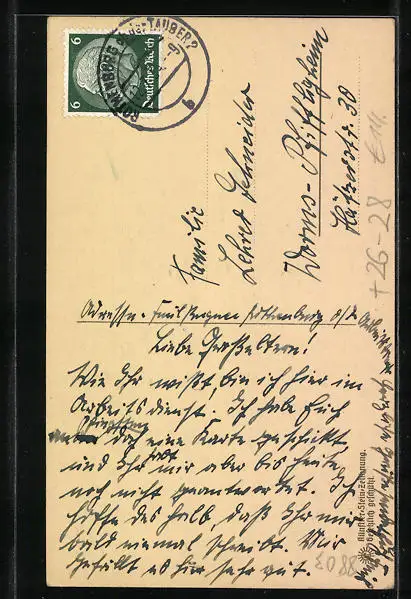 6 Deutsches Reich 6
ROTHENBURG o. d. TAUBER 2
b
Familie
Lehrer Schneider
Worms-Pfiffligheim
30
+26-28 €11.
Adresse. Emil Rothenburg o/T
Liebe Großeltern!
Wie Ihr wißt, bin ich hier im
Arbeitsdienst. Ich habe Euch
doch eine Karte geschickt
und Ihr habt mir aber bis heute
noch nicht geantwortet. Ich
hoffe deshalb, daß Ihr mir
bald einmal schreibt. Mir
gefällt es hier sehr gut.
Künstler-Stein-Zeichnung.
Gesetzlich geschützt.
8803